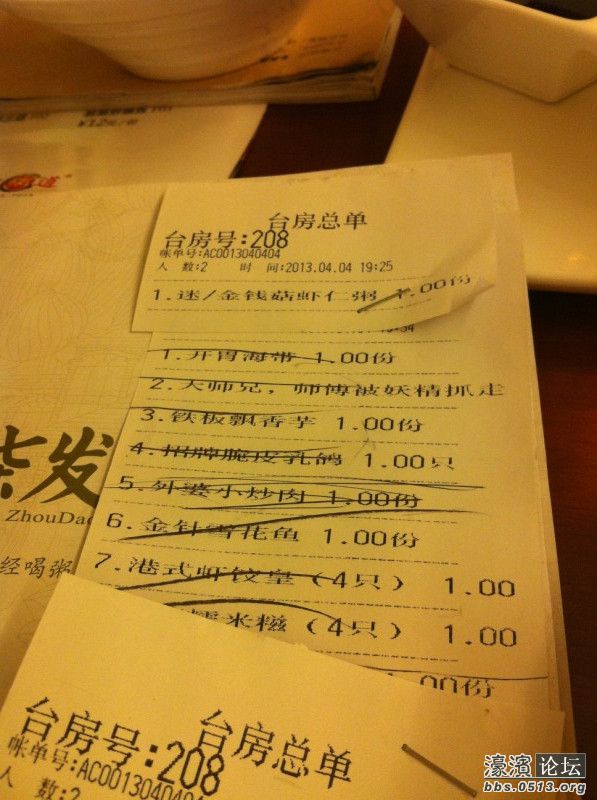 ¥12元/份
台房总单
台房号:208
帐单号:AC0013040404
人 数:2 时 间:2013.04.04 19:25
1.迷/金钱菇虾仁粥 1.00份
1.开胃海带 1.00份
2.大师兄，师傅被妖精抓走
3.铁板飘香芋 1.00份
4.招牌脆皮乳鸽 1.00只
5.外婆小炒肉 1.00份
6.金针雪花鱼 1.00份
7.港式虾饺皇（4只） 1.00
糯米糍（4只） 1.00
1.00份
发
ZhouDao
经喝粥
台房总单
台房号:208
帐单号:AC0013040404
人 数:2
濠滨论坛
bbs.0513.org